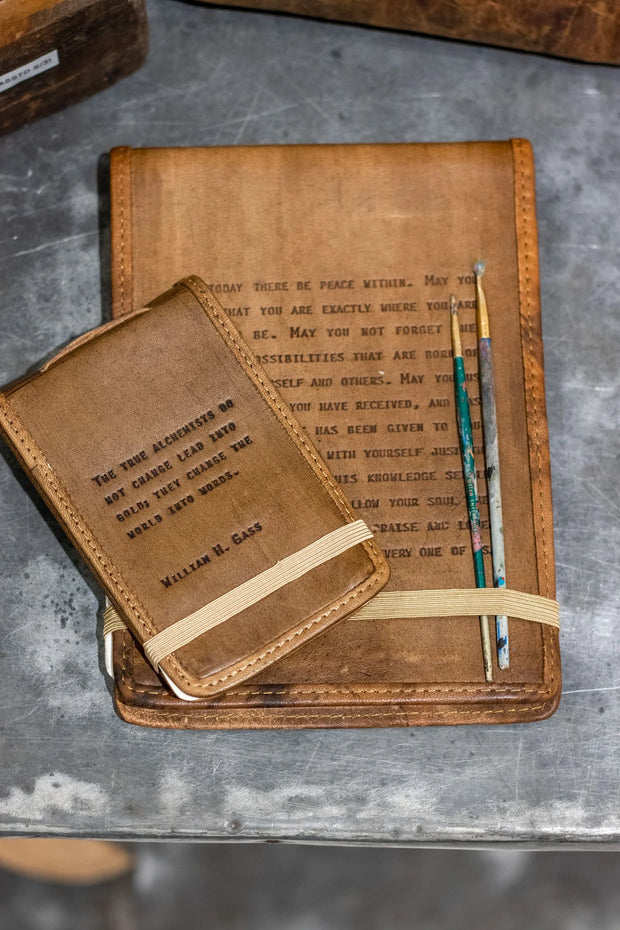 ASSTD S/3)
TODAY THERE BE PEACE WITHIN. MAY YOU
THAT YOU ARE EXACTLY WHERE YOU ARE
BE. MAY YOU NOT FORGET THE
POSSIBILITIES THAT ARE BORN OF
SELF AND OTHERS. MAY YOU
YOU HAVE RECEIVED, AND
HAS BEEN GIVEN TO YOU
WITH YOURSELF JUST
THIS KNOWLEDGE
ALLOW YOUR SOUL THE
PRAISE AND LOVE
EVERY ONE OF US.
THE TRUE ALCHEMISTS DO
NOT CHANGE LEAD INTO
GOLD; THEY CHANGE THE
WORLD INTO WORDS.
WILLIAM H. GASS